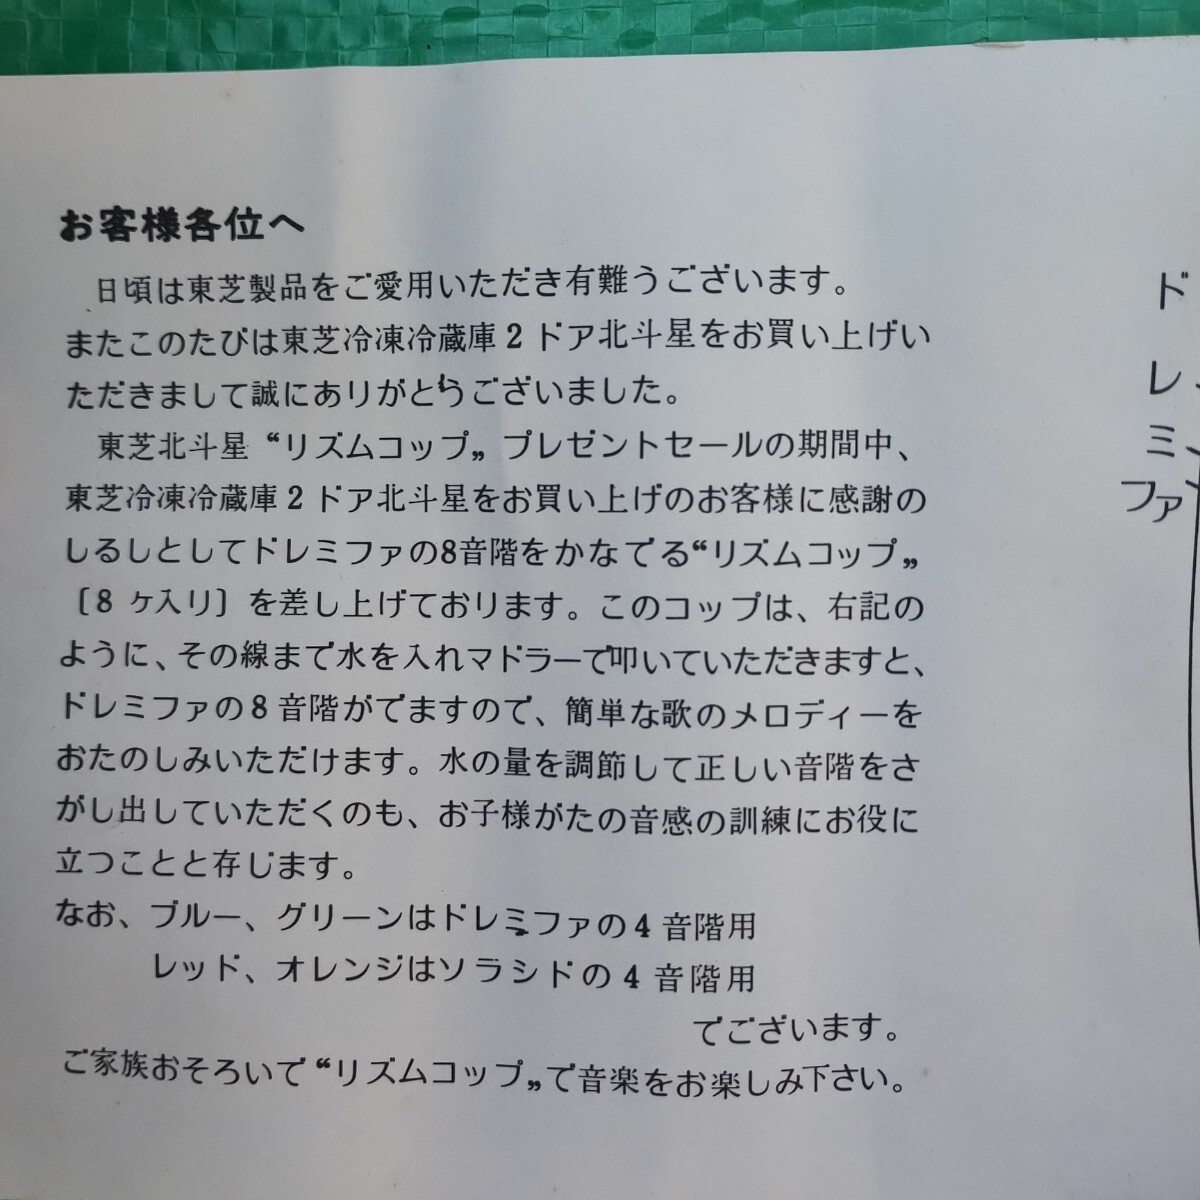 お客様各位へ
日頃は東芝製品をご愛用いただき有難うございます。
またこのたびは東芝冷凍冷蔵庫2ドア北斗星をお買い上げい
ただきまして誠にありがとうございました。
東芝北斗星“リズムコップ„プレゼントセールの期間中、
東芝冷凍冷蔵庫2ドア北斗星をお買い上げのお客様に感謝の
しるしとしてドレミファの8音階をかなでる“リズムコップ„
〔8ヶ入り〕を差し上げております。このコップは、右記の
ように、その線まで水を入れマドラーで叩いていただきますと、
ドレミファの8音階がでますので、簡単な歌のメロディーを
おたのしみいただけます。水の量を調節して正しい音階をさ
がし出していただくのも、お子様がたの音感の訓練にお役に
立つことと存じます。
なお、ブルー、グリーンはドレミファの4音階用
レッド、オレンジはソラシドの4音階用
でございます。
ご家族おそろいで“リズムコップ„で音楽をお楽しみ下さい。
ド
レ
ミ
ファ